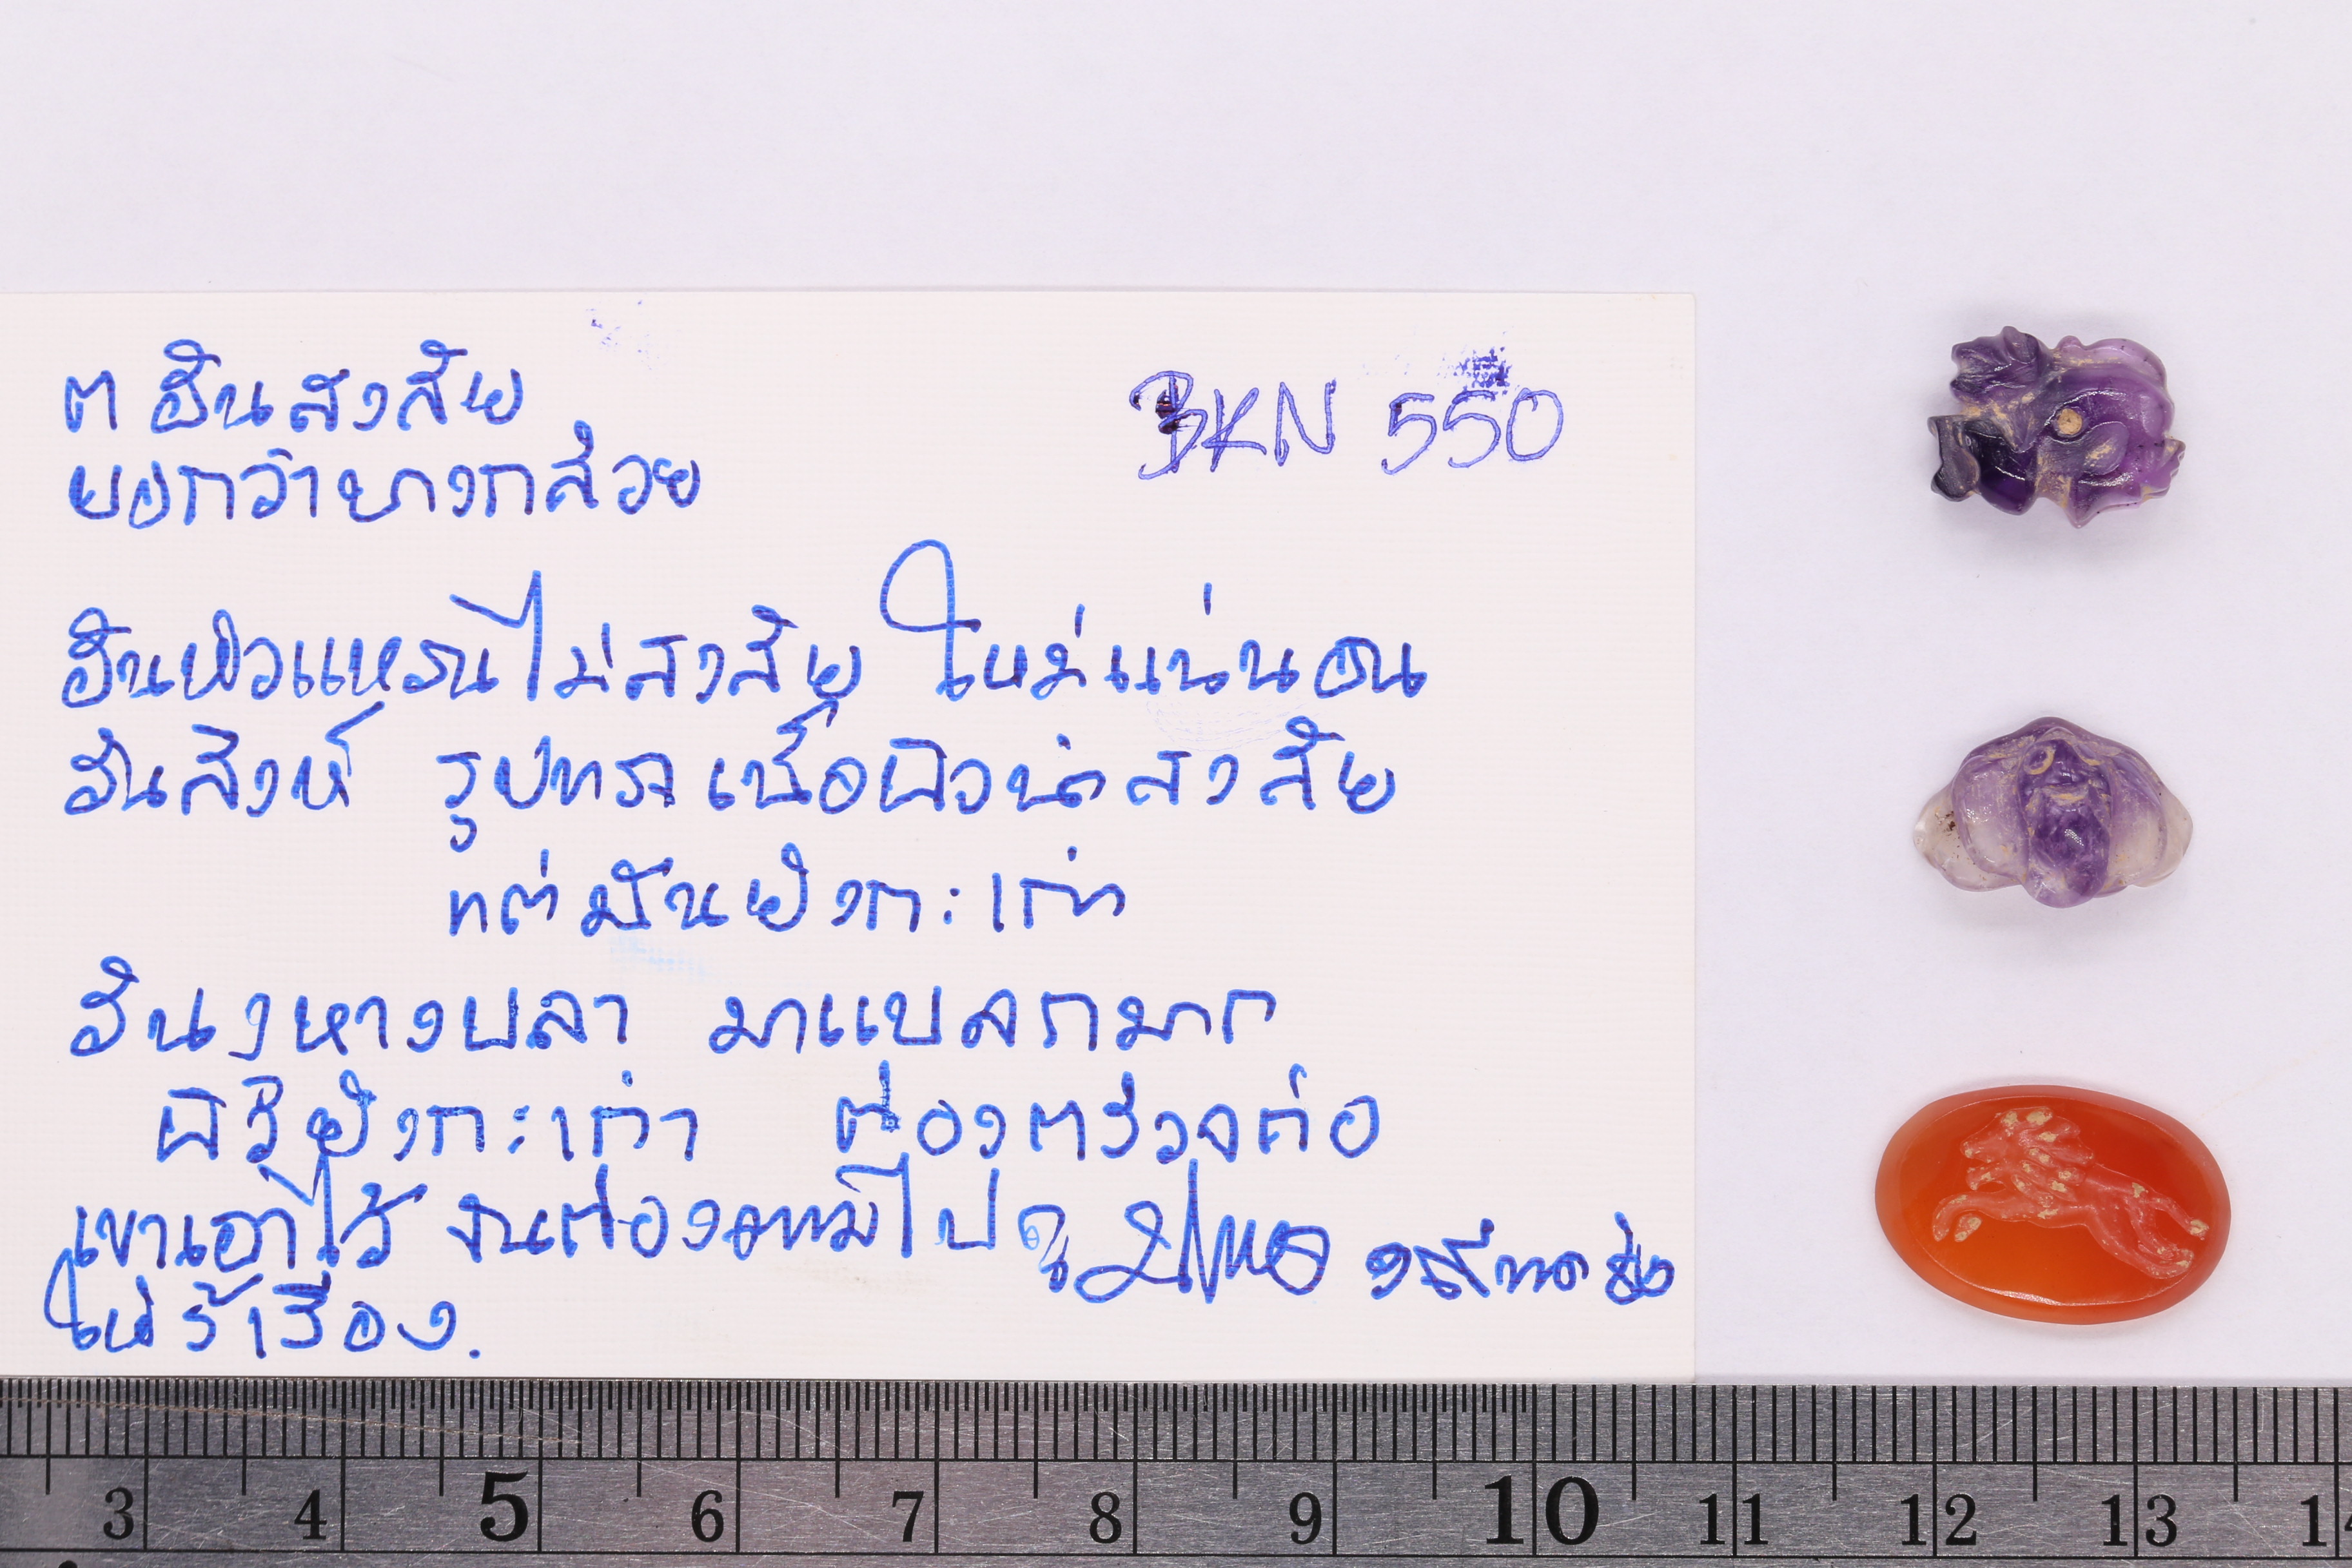 ต อันสงสัย
BKN 550
บอกว่าบางกล้วย
อันหัวแหวนไม่สงสัย ใหม่แน่นอน
อันสิงห์ รูปทรง เนื้อผิวน่าสงสัย
แต่มันยังกะเก่า
อัน หางปลา มาแปลกมาก
ผิวยังกะเก่า ต้องตรวจต่อ
เขาเอาไว้ จนต้องไปดู
ให้รู้เรื่อง.
3 4 5 6 7 8 9 10 11 12 13